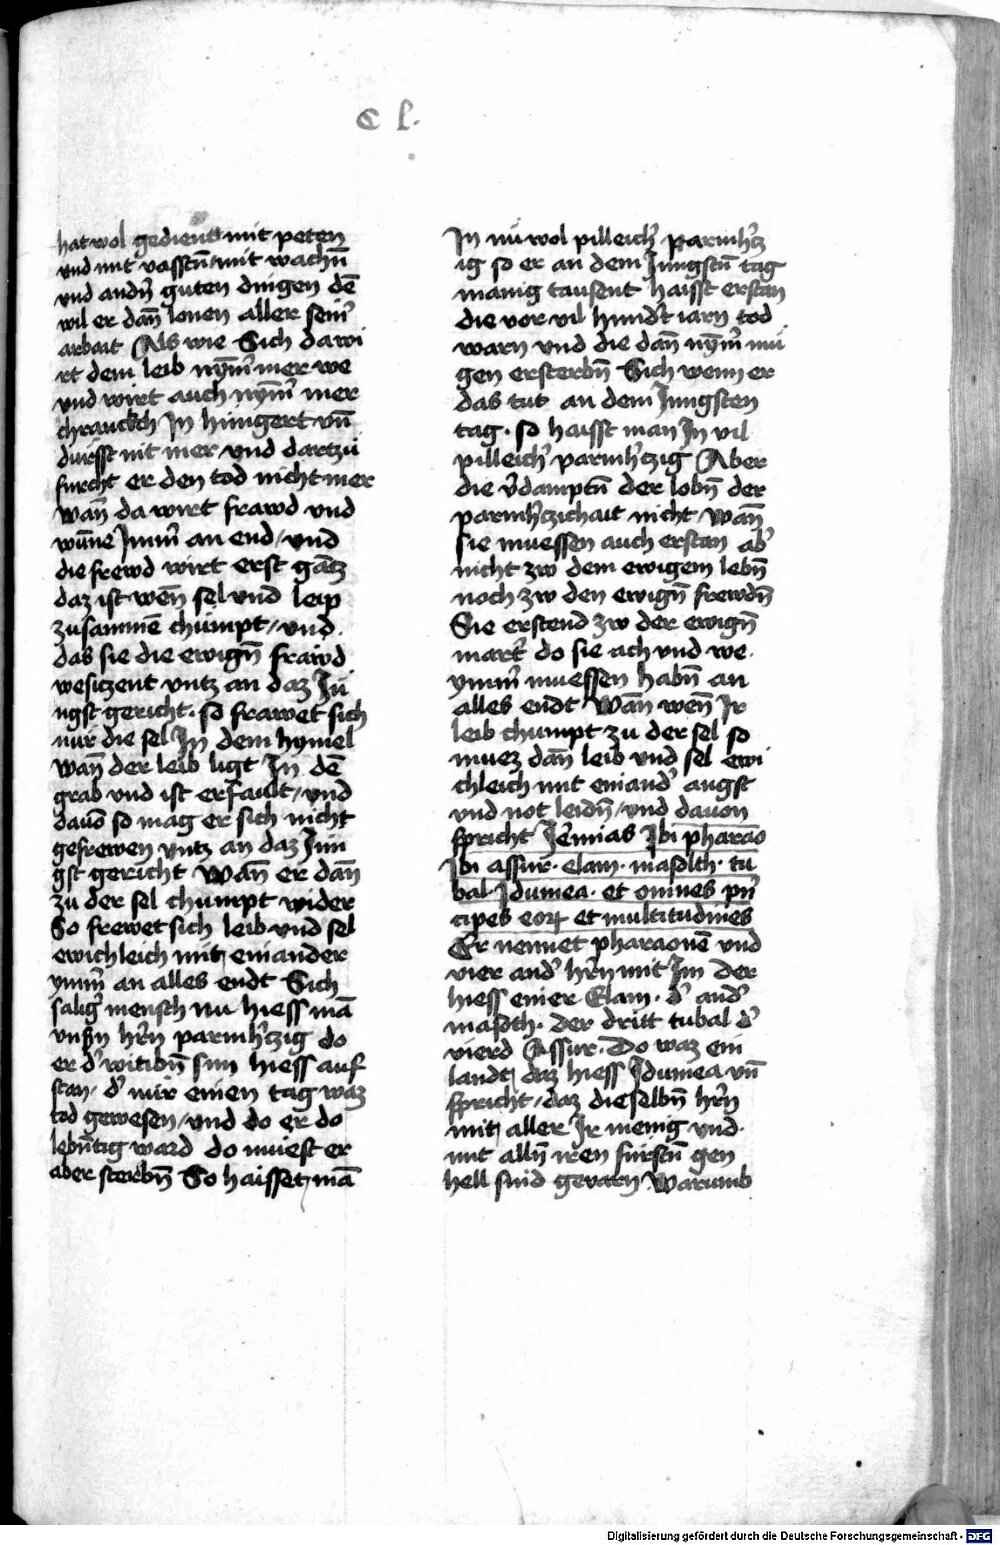 C l.
hat wol gedient mit peten
vnd mit vasstn̄ mit wachn̄
vnd andn̾ guten dingen dē
wil er dan̄ lonen aller sein̾
arbait Als wie Sich dawi
rt dem leib nym̄̾ mer we
vnd wirt auch nym̄̾ mer
chranckch In hungert vn̄
dursst nit mer vnd dartzü
furcht er den tod nicht mer
wan̄ da wirt frawd vnd
wūne Imm̾ an end / vnd
die frewd wirt erst gātz
daz ist wen̄ sel vnd leip
zusammē chümpt / vnd.
das sie die ewign̄ frawd
wesitzent vntz an daz Jü
ngst gericht. so frawet sich
nur die sel In dem hymel
wan̄ der leib ligt In dē
grab vnd ist erfault / vnd
dauō so mag er sich nicht
gefrewen vntz an daz Jün
gst gericht Wan̄ er dan̄
zu der sel chumpt wider
So frewet sich leib vnd sel
ewichleich mit einander
ymm̾ an alles endt Sich
salig̾ mensch nu hiess mā
vnßn̄ hr̄n parmh̾tzig do
er d̾ witibn̄ sun hiess auf
stan. d̾ nür einen tag waz
tod gewesen / vnd do er do
lebn̄tig ward do muest er
aber sterbn̄ So haisset mā
In nü wol pilleich̾ parmh̾tz
ig so er an dem Jungstn̄ tag
manig tausent haisst erstan
die vor vil hund̾t iarn tod
warn vnd die dan̄ nym̄̾ mü
gen ersterbn̄ Sich wenn er
das tut an dem Jungsten
tag. so haisst man In vil
pilleich̾ parmh̾tzig Aber
die v̾damptn̄ der lobn̄ der
parmh̾tzichait nicht / wan̄
sie muessen auch erstan ab̾
nicht zw dem ewigem lebn̄
noch zw den ewign̄ frewdn̄
Sie erstend zw der ewign̄
mart̾ do sie ach vnd we.
ymm̾ muessen habn̄ an
alles endt / Wan̄ wen̄ Ir
leib chumpt zu der sel so
muez dan̄ leib vnd sel ewi
chleich mit einand̾ angst
vnd not leidn̄ / vnd dauon
spricht Jer̾mias Ibi pharao
Ibi assur. elam. masolth. tu
bal Idumea. et omnes prī
cipes eorꝝ et multitudines
Er nennet pharaonē vnd
vier and̾ hr̄n mit Im der
hiess einer Elam. d̾ and̾
masoth. Der dritt tubal d̾
vierd Assur. Do waz ein
landt daz hiess Idumea vn̄
spricht / daz dieselbn̄ hr̄n
mit aller Ir menig vnd.
mit alln̄ iren fürstn̄ gen
hell sind gevarn Warumb
Digitalisierung gefördert durch die Deutsche Forschungsgemeinschaft - DFG